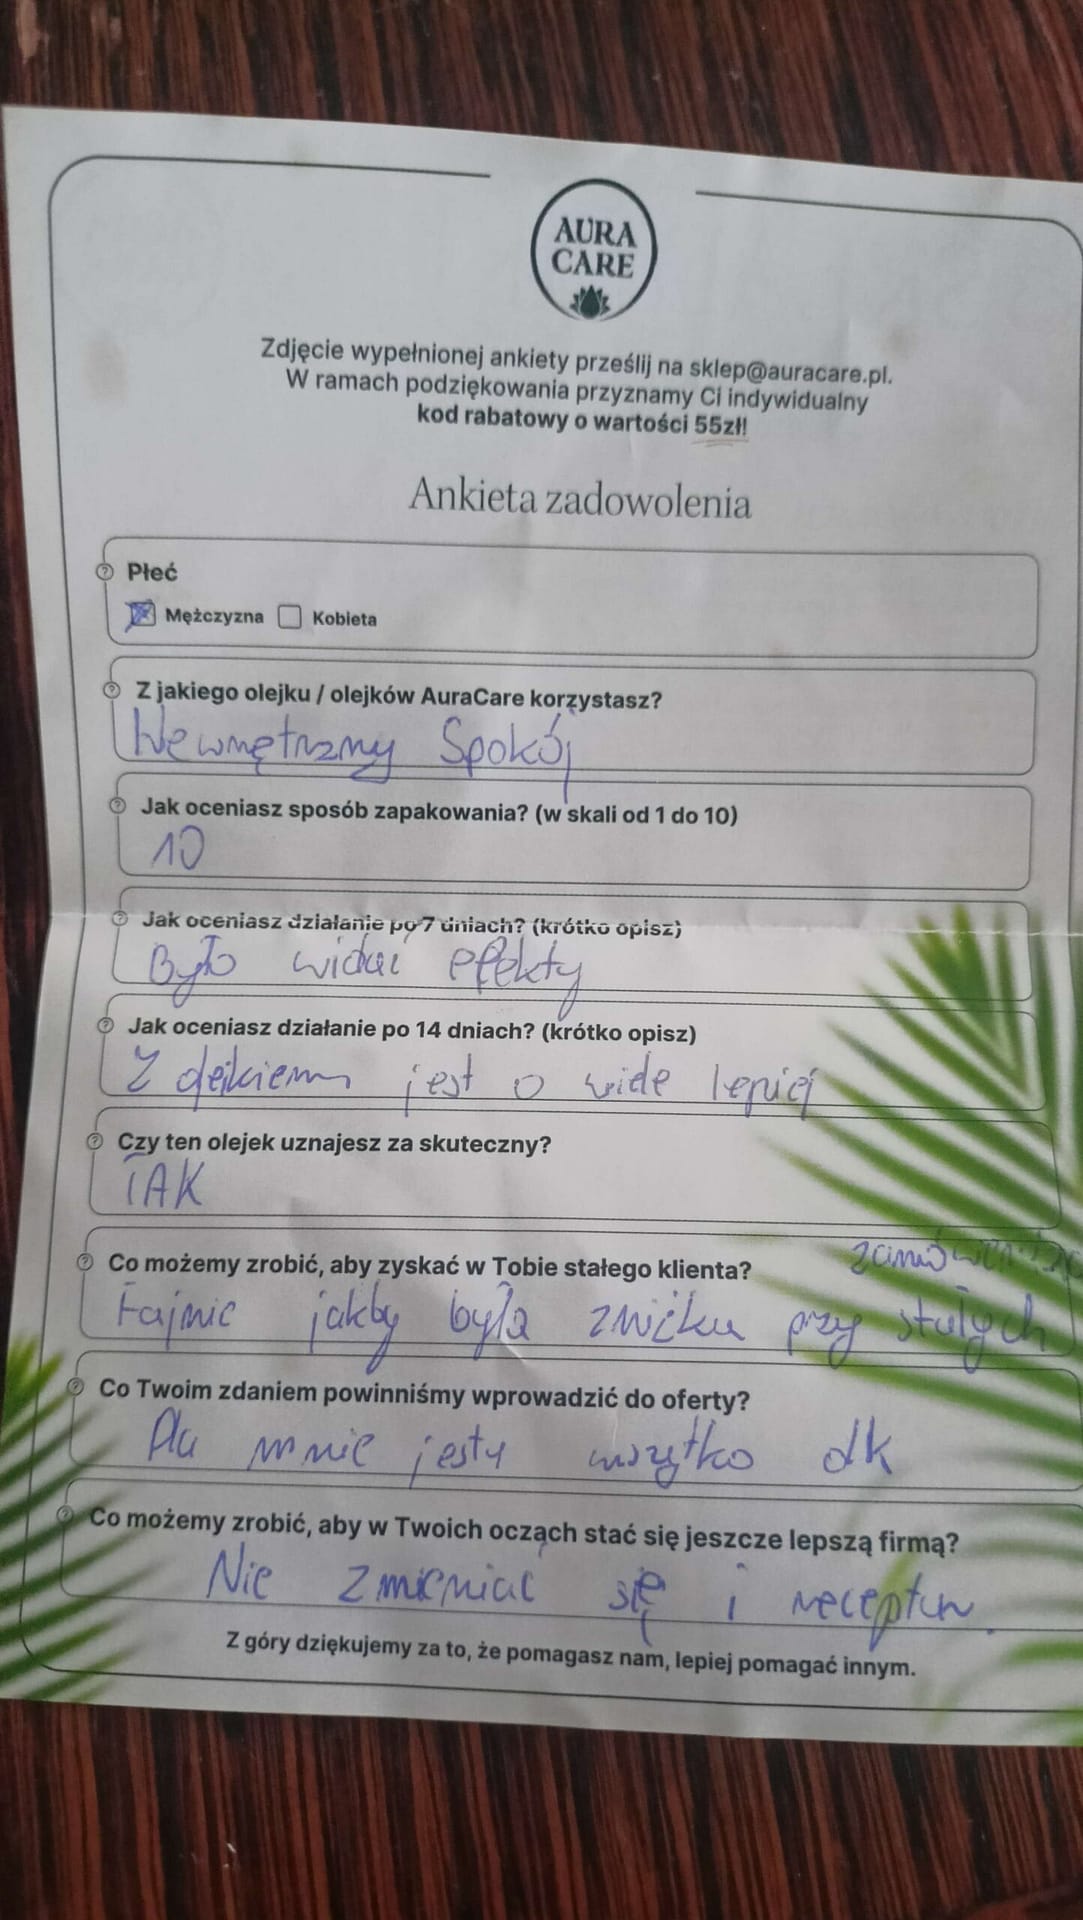 AURA
CARE
Zdjęcie wypełnionej ankiety prześlij na sklep@auracare.pl.
W ramach podziękowania przyznamy Ci indywidualny
kod rabatowy o wartości 55zł!
Ankieta zadowolenia
Płeć
Mężczyzna Kobieta
Z jakiego olejku / olejków AuraCare korzystasz?
Wewnętrzny Spokój
Jak oceniasz sposób zapakowania? (w skali od 1 do 10)
10
Jak oceniasz działanie po 7 dniach? (krótko opisz)
Było widać efekty
Jak oceniasz działanie po 14 dniach? (krótko opisz)
Z olejkiem jest o wiele lepiej
Czy ten olejek uznajesz za skuteczny?
TAK
Co możemy zrobić, aby zyskać w Tobie stałego klienta?
Fajnie jakby była zniżka przy stałych
zamówieniach
Co Twoim zdaniem powinniśmy wprowadzić do oferty?
Dla mnie wszytko ok
Co możemy zrobić, aby w Twoich oczach stać się jeszcze lepszą firmą?
Nie zmieniać się i receptur.
Z góry dziękujemy za to, że pomagasz nam, lepiej pomagać innym.